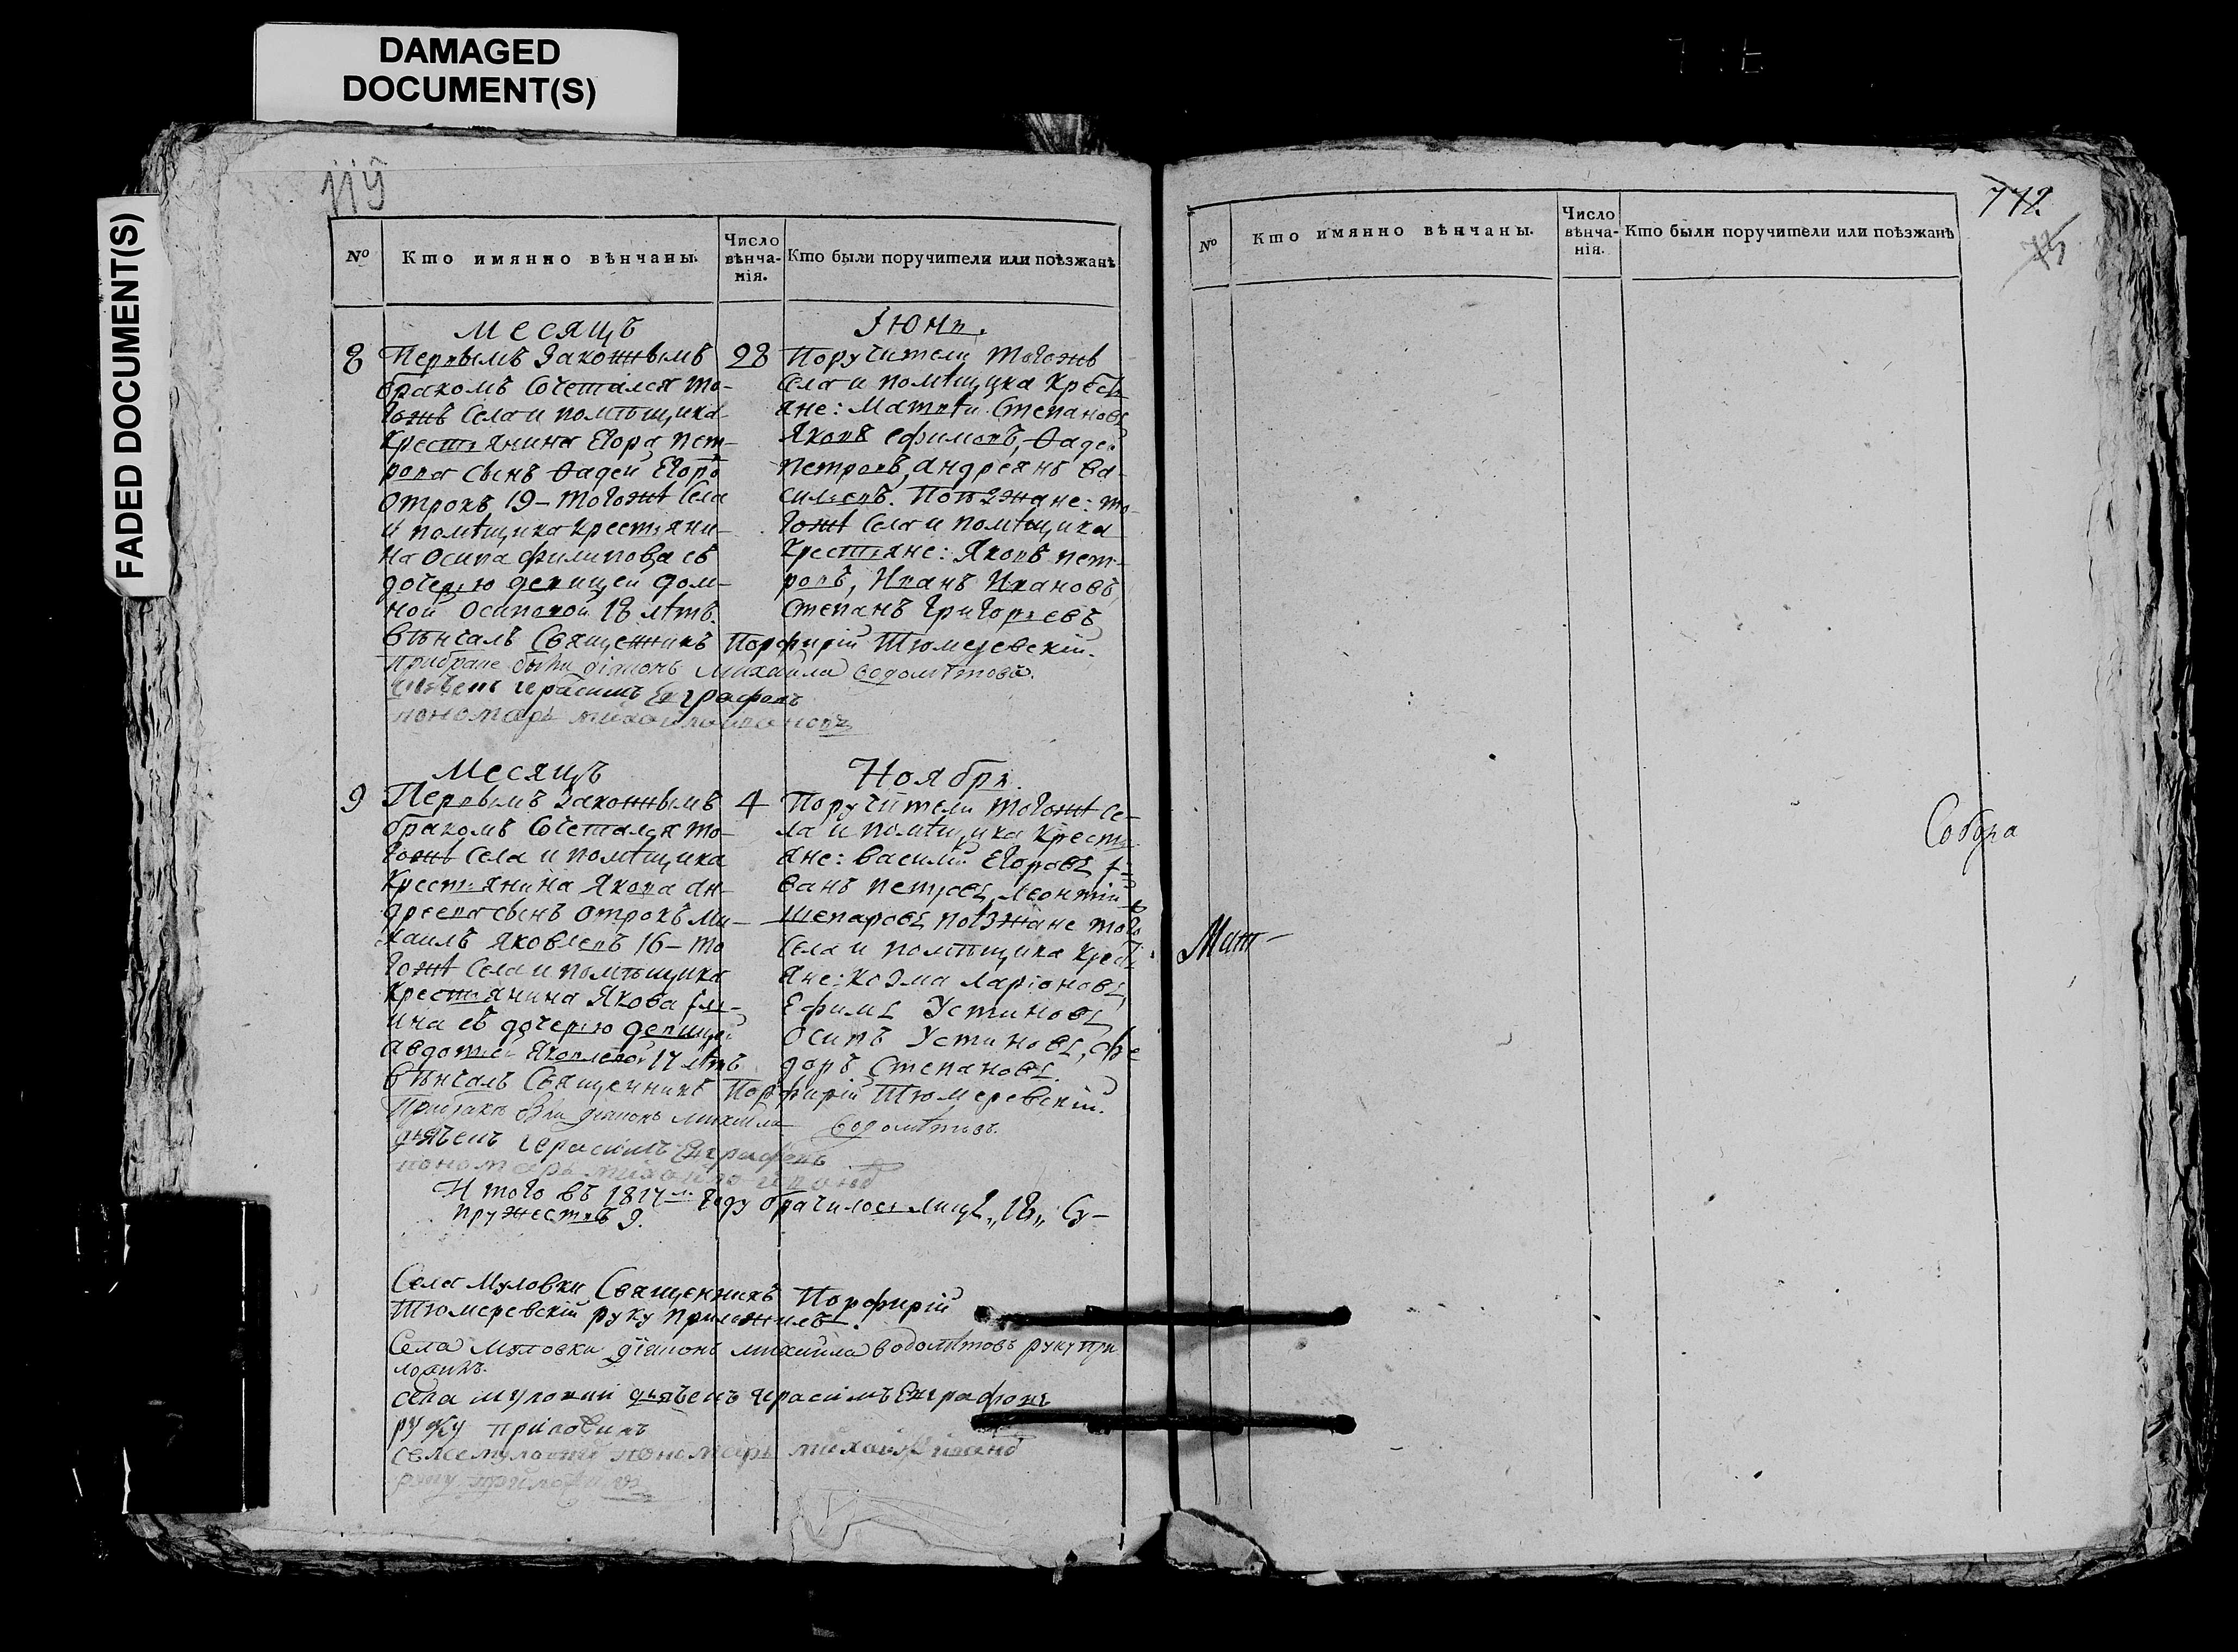 DAMAGED
DOCUMENT(S)
FADED DOCUMENT(S)
119
№
Кто имянно вѣнчаны.
Число
вѣнча-
нія.
Кто были поручители или поѣзжанѣ
Месяцъ
Іюня.
8
Первымъ законнымъ
бракомъ сочетался то-
гожъ села и помѣщика
крестьянина Егора Пет-
рова сынъ Ѳадей Егоро
отрокъ 19 – тогожѣ села
и помѣщика крестьяни-
на Осипа Филипова съ
дочерью девицей Дом-
ной Осиповой 18 лѣтъ.
28
Поручители тогожъ
села и помѣщика кресть
яне: Матвѣй Степановъ
Яковъ Ефимовъ, Ѳадей
Петровъ, Андреянъ Ва-
сильевъ. Поѣзжане: то-
гожѣ села и помѣщика
крестьяне: Яковъ Пет-
ровъ, Иванъ Ивановъ,
Степанъ Григорьевъ
Вѣнчалъ Священникъ Порфирій Тюмеревскій.
при браке были діаконъ Михаила Водолѣтовъ.
дьячекъ Герасимъ Евграфовъ
пономарь
Месяцъ
Ноября.
9
Первымъ законнымъ
бракомъ сочетался то-
гожъ села и помѣщика
крестьянина Якова Ан-
дреева сынъ отрокъ Ми-
хаилъ Яковлевъ 16 – то
гожѣ села и помѣщика
крестьянина Якова
ина съ дочерью девицей
Авдотьей Яковлевой 17 лѣтъ
4
Поручители тогожѣ се-
ла и помѣщика кресть
яне: Василій Егоровъ
Петровъ, Леонтій
поѣзжане того
села и помѣщика кресть
яне: Козма Ларіоновъ,
Ефимъ Устиновъ
Осипъ Устиновъ, Фе
доръ Степановъ.
Вѣнчалъ Священникъ Порфирій Тюмеревскій.
При браке были діаконъ Михаила Водолѣтовъ.
дьячекъ Герасимъ Евграфовъ
пономарь
И того въ 1817м году брачилось лицъ „18„ Су-
пружествъ 9.
Села Муловки Священникъ Порфирій
Тюмеревскій руку приложилъ.
Села Муловки діаконъ Михаила Водолѣтовъ руку при
ложилъ.
села Муловки дьячекъ Герасимъ Евграфовъ
руку приложилъ
пономарь
руку приложилъ
772
№
Кто имянно вѣнчаны.
Число
вѣнча-
нія.
Кто были поручители или поѣзжанѣ
Собора